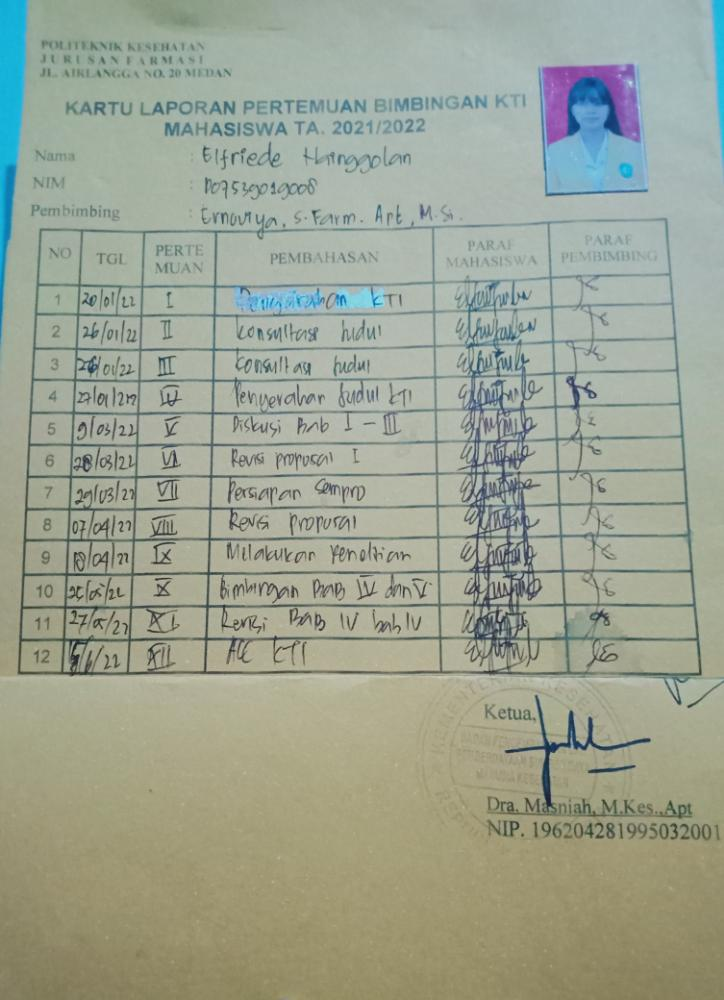 POLITEKNIK KESEHATAN
JURUSAN FARMASI
JL. AIRLANGGA NO. 20 MEDAN
KARTU LAPORAN PERTEMUAN BIMBINGAN KTI
MAHASISWA TA. 2021/2022
Nama : Elfriede Hainggolan
NIM : P07539019008
Pembimbing : Ernoviya, S. Farm. Apt, M.Si.
NO TGL PERTE MUAN PEMBAHASAN PARAF MAHASISWA PARAF PEMBIMBING
1 20/01/22 I Pengarahan KTI
2 26/01/22 II Konsultasi Judul
3 26/01/22 III Konsultasi Judul
4 27/01/22 IV Penyerahan Judul KTI
5 9/03/22 V Diskusi Bab I - III
6 28/03/22 VI Revisi proposal I
7 29/03/22 VII Persiapan Sempro
8 07/04/22 VIII Revisi proposal
9 /04/22 IX Melakukan Penelitian
10 25/05/22 X Bimbingan BAB IV dan V
11 27/05/22 XI Revisi BAB IV bab IV
12 /6/22 XII ACC KTI
Ketua,
KEMENTERIAN KESEHATAN
Dra. Masniah, M.Kes.,Apt
NIP. 196204281995032001